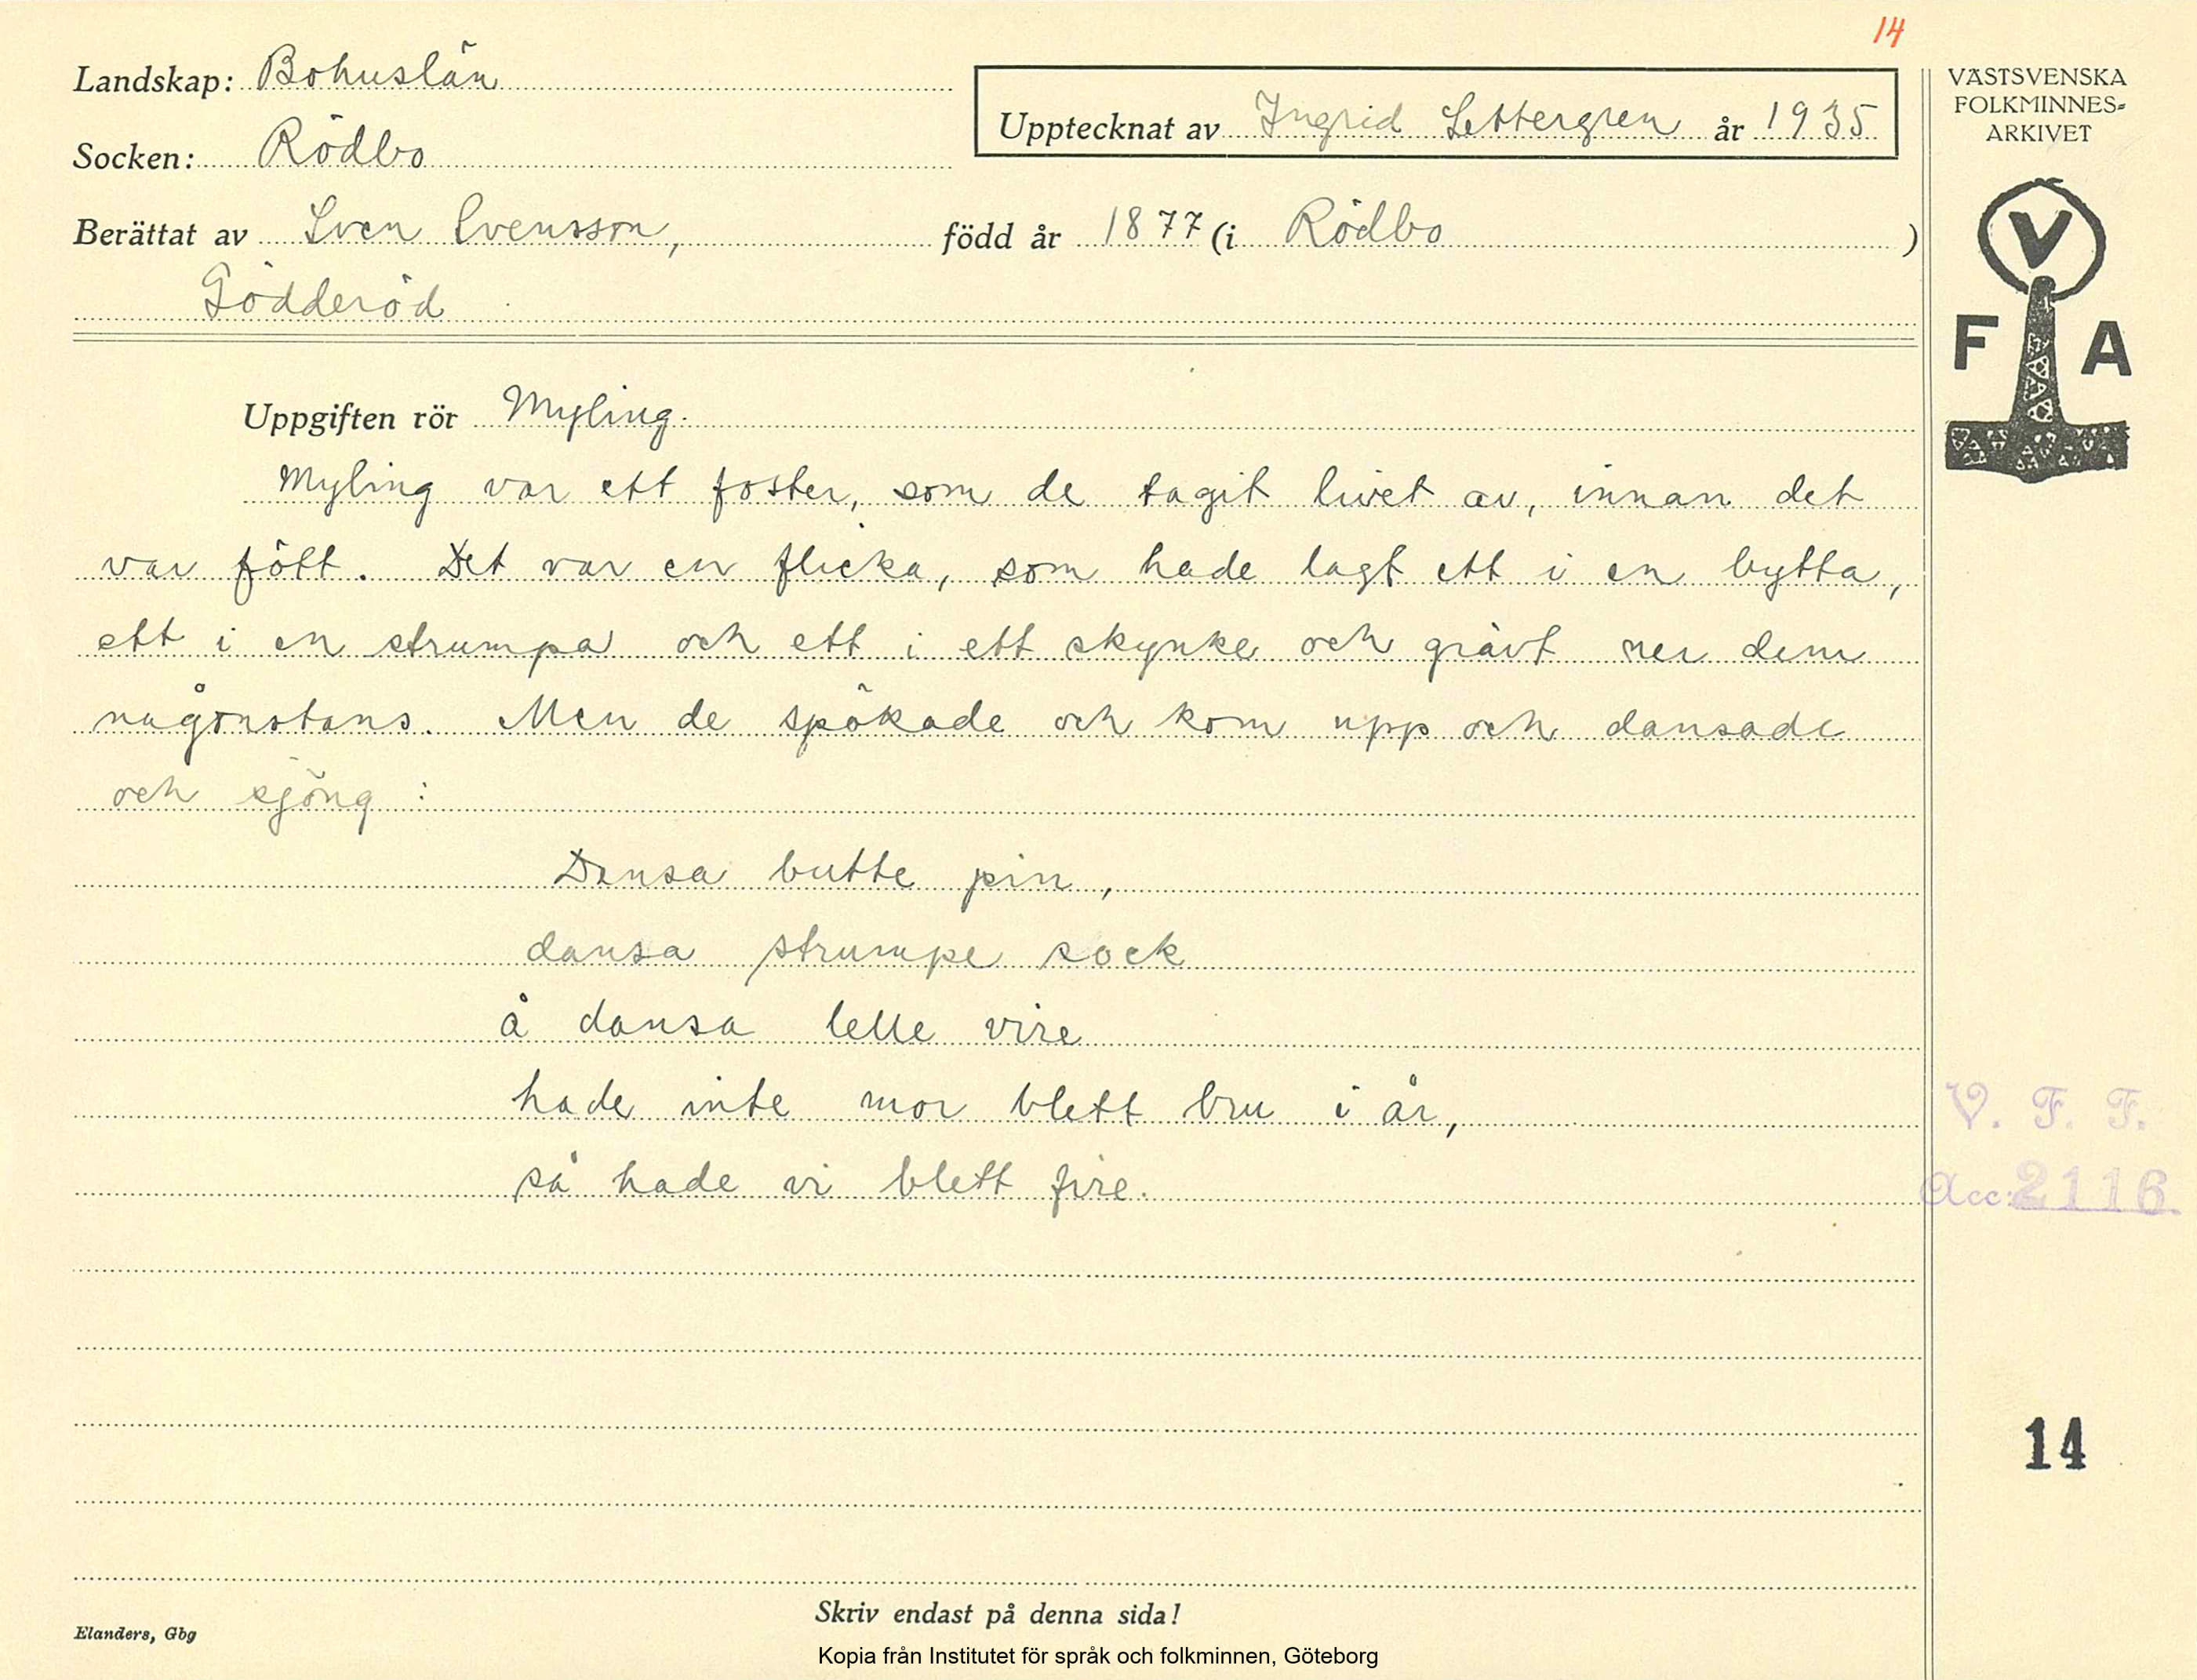 14
Landskap: Bohuslän
Upptecknat av Ingrid Settergren år 1935
Socken: Rödbo
Berättat av Sven Svensson, född år 1877 (i Rödbo )
Gödderöd
VÄSTSVENSKA
FOLKMINNES=
ARKIVET
V
F A
Uppgiften rör Myling.
Myling var ett foster, som de tagit livet av, innan det
var fött. Det var en flicka, som hade lagt ett i en bytta,
ett i en strumpa och ett i ett skynke och grävt ner dem
någonstans. Men de spökade och kom upp och dansade
och sjöng :
Dansa butte pin,
dansa strumpe sock
å dansa lelle vire
hade inte mor blett bru i år,
så hade vi blett fire.
V. F. F.
Acc: 2116.
14
Skriv endast på denna sida!
Elanders, Gbg
Kopia från Institutet för språk och folkminnen, Göteborg